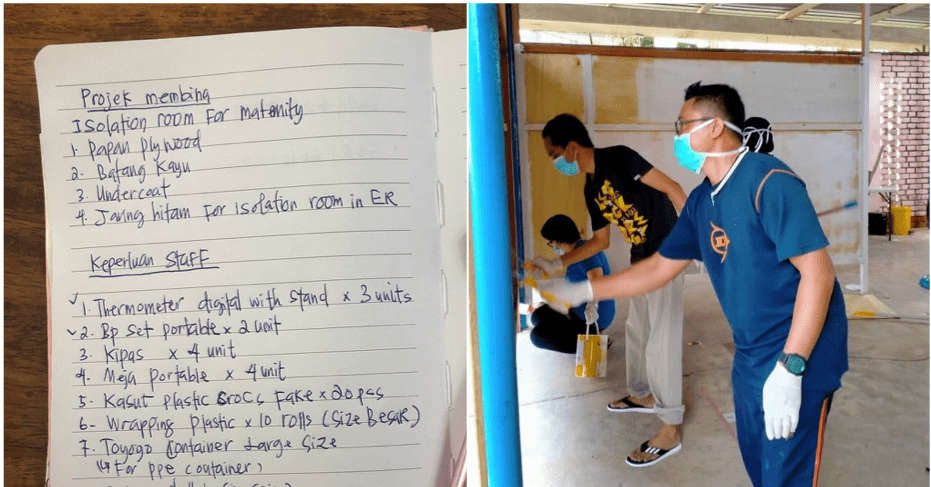 Projek membina
Isolation room For maternity
1. Papan plywood
2. Batang Kayu
3. Undercoat
4. Jaring hitam For isolation room in ER
Keperluan Staff
✓ 1. Thermometer digital with stand x 3 units
✓ 2. Bp set portable x 2 unit
3. Kipas x 4 unit
4. Meja portable x 4 unit
5. Kasut plastic crocs Fake x 20 pcs
6- Wrapping plastic x 10 rolls (size Besar)
7. Toyogo Container Large size
↳ For ppe container,